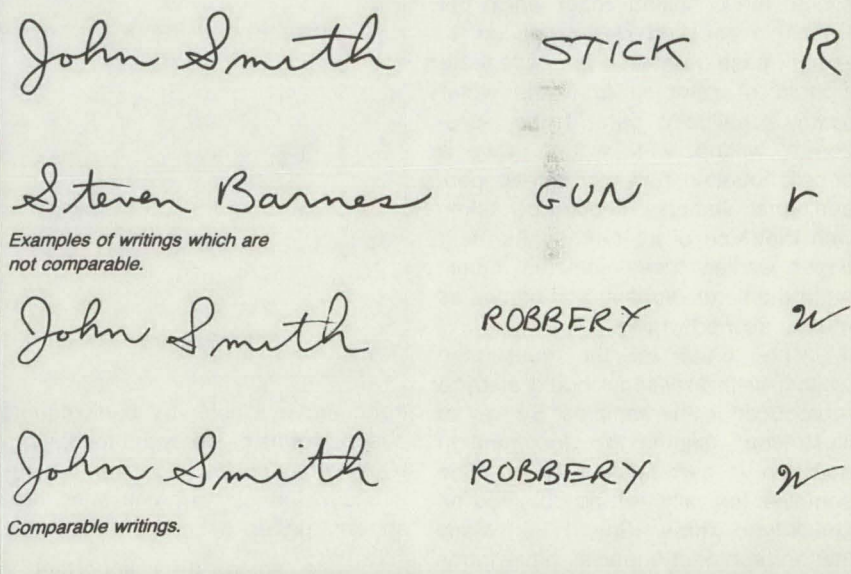 John Smith STICK R
Steven Barnes GUN r
Examples of writings which are
not comparable.
John Smith ROBBERY w
John Smith ROBBERY w
Comparable writings.